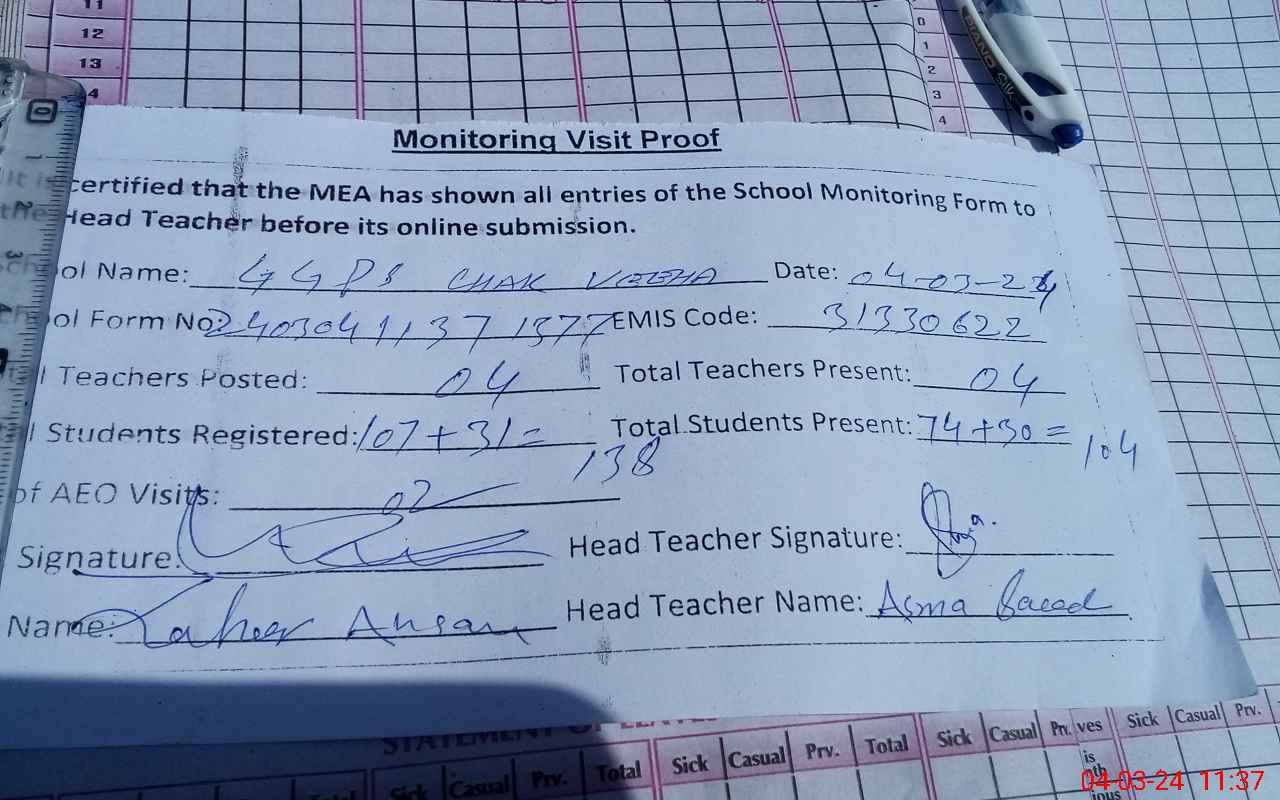 11
12
13
4
0
1
2
3
4
PIANO Silk
0
1
2
3
Monitoring Visit Proof
It is certified that the MEA has shown all entries of the School Monitoring Form to
the Head Teacher before its online submission.
ol Name: GGPS CHAK Date: 04-03-24
ol Form No 2403041137 1377 EMIS Code: 31330622
l Teachers Posted: 04 Total Teachers Present: 04
l Students Registered: 107+31= 138 Total Students Present: 74+30= 104
of AEO Visits: 02
Signature: Head Teacher Signature:
Name: Head Teacher Name: Asma Saeed
STATEMENT OF LEAVES
Sick Casual Prv. Total Sick Casual Prv. Total Sick Casual Prv. ves Sick Casual Prv.
is
oth
ious
04-03-24 11:37